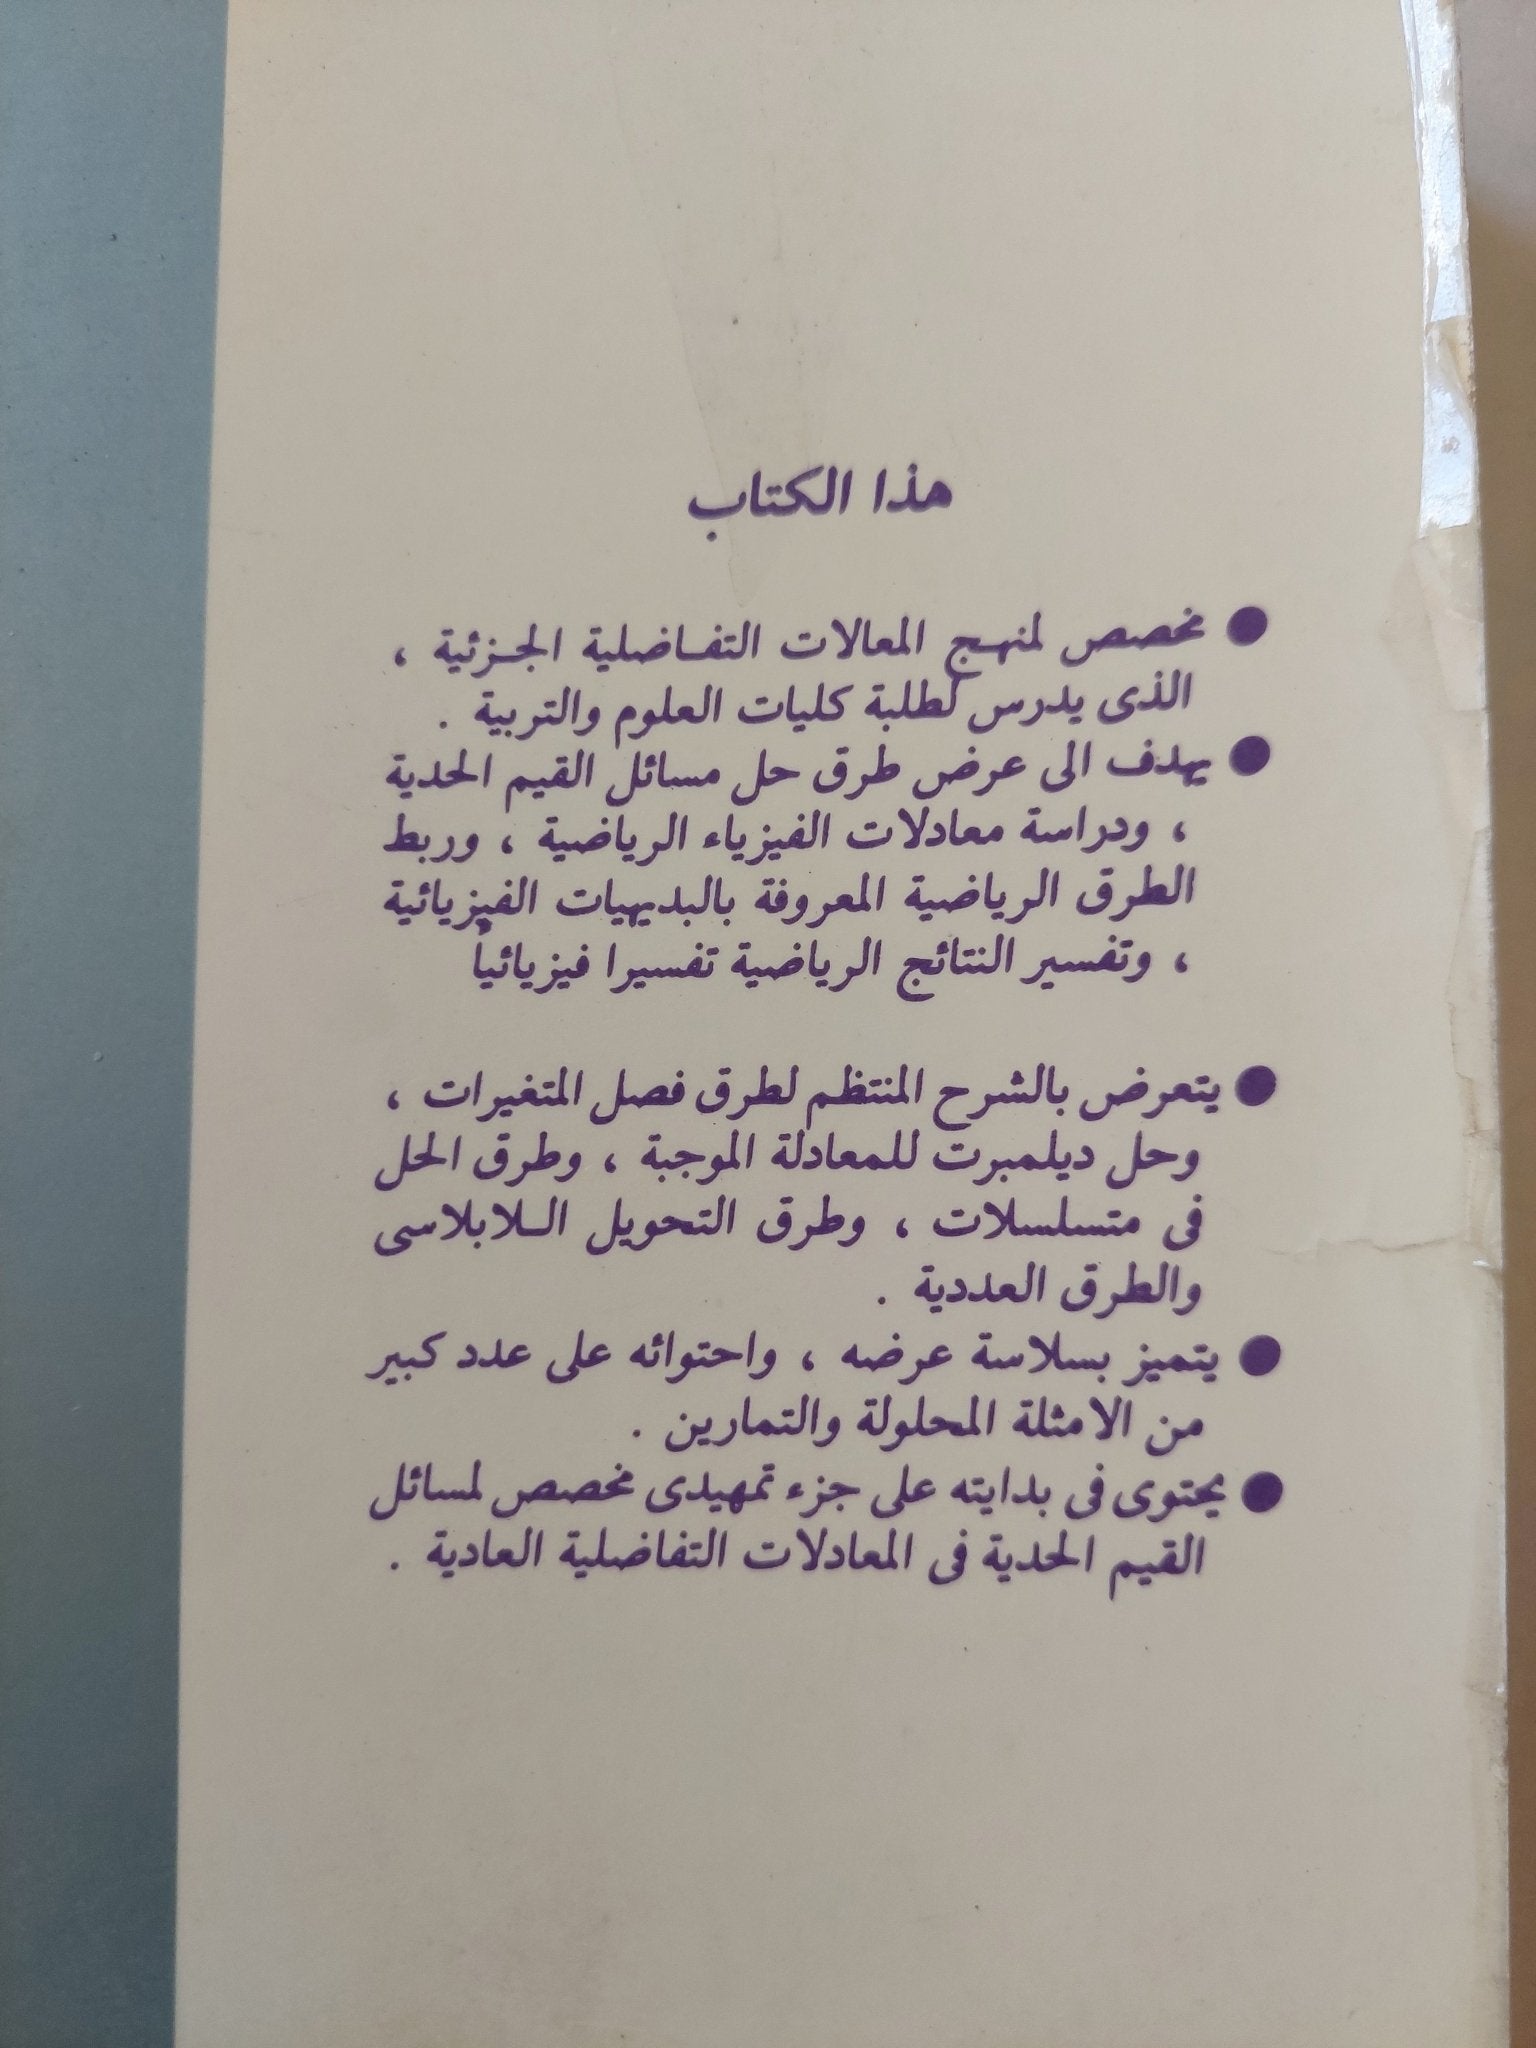 هذا الكتاب
● مخصص لمنهج المعالات التفاضلية الجزئية ،
الذى يدرس لطلبة كليات العلوم والتربية .
● يهدف الى عرض طرق حل مسائل القيم الحدية
، ودراسة معادلات الفيزياء الرياضية ، وربط
الطرق الرياضية المعروفة بالبديهيات الفيزيائية
، وتفسير النتائج الرياضية تفسيرا فيزيائياً
● يتعرض بالشرح المنتظم لطرق فصل المتغيرات ،
وحل ديلمبرت للمعادلة الموجبة ، وطرق الحل
فى متسلسلات ، وطرق التحويل اللابلاسى
والطرق العددية .
● يتميز بسلاسة عرضه ، واحتوائه على عدد كبير
من الامثلة المحلولة والتمارين .
● يحتوى فى بدايته على جزء تمهيدى مخصص لمسائل
القيم الحدية فى المعادلات التفاضلية العادية .